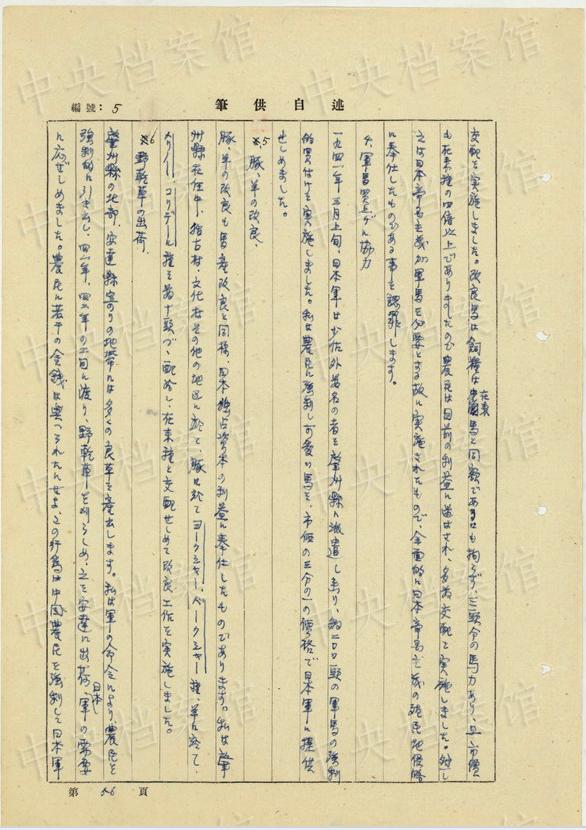 述自供筆
編號：5
交配を実施しました。改良馬は飼糧は在来馬と同額であるにも拘らず、三頭分の馬力あり、且市價
も在来種の四倍以上でありましたので農民は目前の利益に迷はされ、多数交配を実施しました。然し
之は日本帝国主義が軍馬を必要とする故に実施されたもので、全面的に日本帝国主義の殖民地侵略
に奉仕したものである事を認罪します。
4、軍馬買上げに協力
一九四一年三月上旬、日本軍は少佐外若名の者を肇州縣に派遣し来り、約二〇〇頭の軍馬の強制
的買付けを実施しました。私は農民に強制し可愛い馬を、市価の三分の一の価格で日本軍に提供
せしめました。
※5 豚、羊の改良、
豚、羊の改良も馬産改良と同様、日本独占資本の利益に奉仕したものであります。私は肇
州縣在任中、拾古村、文化村其の他の地区に於て、豚に於てヨークシャー、バークシャー種、羊に於て、
メリノー、コリデール種を若干頭づゝ配給し、在来種と交配せしめて改良工作を実施しました。
※6 野乾草の出荷、
肇州縣の北部、安達縣寄りの地帯には多くの良草を産出します。私は軍の命令により、農民を
強制的に引き出し、四一年、四二年の二旬に渡り、野乾草を刈らしめ、之を安達に出荷、日本軍の需要
に応ぜしめました。農民に若干の金銭は与へられたにせよ、この行為は中国農民を強制して日本軍
第 56 頁
中央档案馆